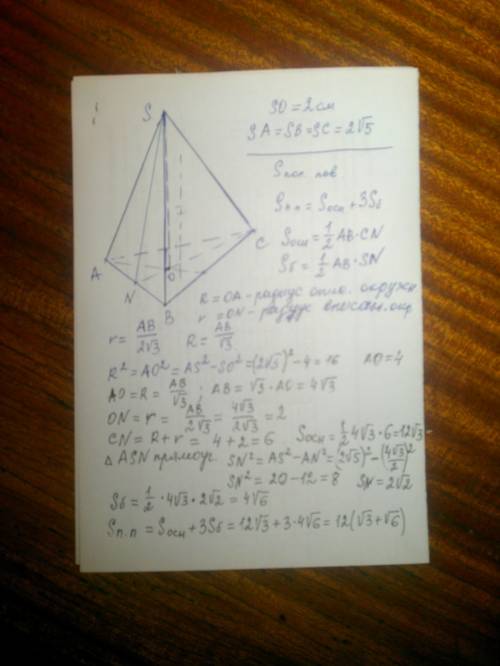 S
SO = 2 см
SA = SB = SC = 2√5
Sпол. пов.
Sп.п = Sосн + 3Sб
Sосн = 1/2 AB·CN
Sб = 1/2 AB·SN
A
C
O
N
B
R = OA - радиус опис. окружн
r = ON - радиус вписан. окр
r = AB/2√3 R = AB/√3
R² = AO² = AS² - SO² = (2√5)² - 4 = 16 AO = 4
AO = R = AB/√3 ; AB = √3 · AO = 4√3
ON = r = AB/2√3 = 4√3/2√3 = 2
CN = R + r = 4 + 2 = 6 Sосн = 1/2 4√3 · 6 = 12√3
△ ASN прямоуг. SN² = AS² - AN² = (2√5)² - (4√3/2)²
SN² = 20 - 12 = 8 SN = 2√2
Sб = 1/2 · 4√3 · 2√2 = 4√6
Sп.п = Sосн + 3Sб = 12√3 + 3·4√6 = 12(√3 + √6)